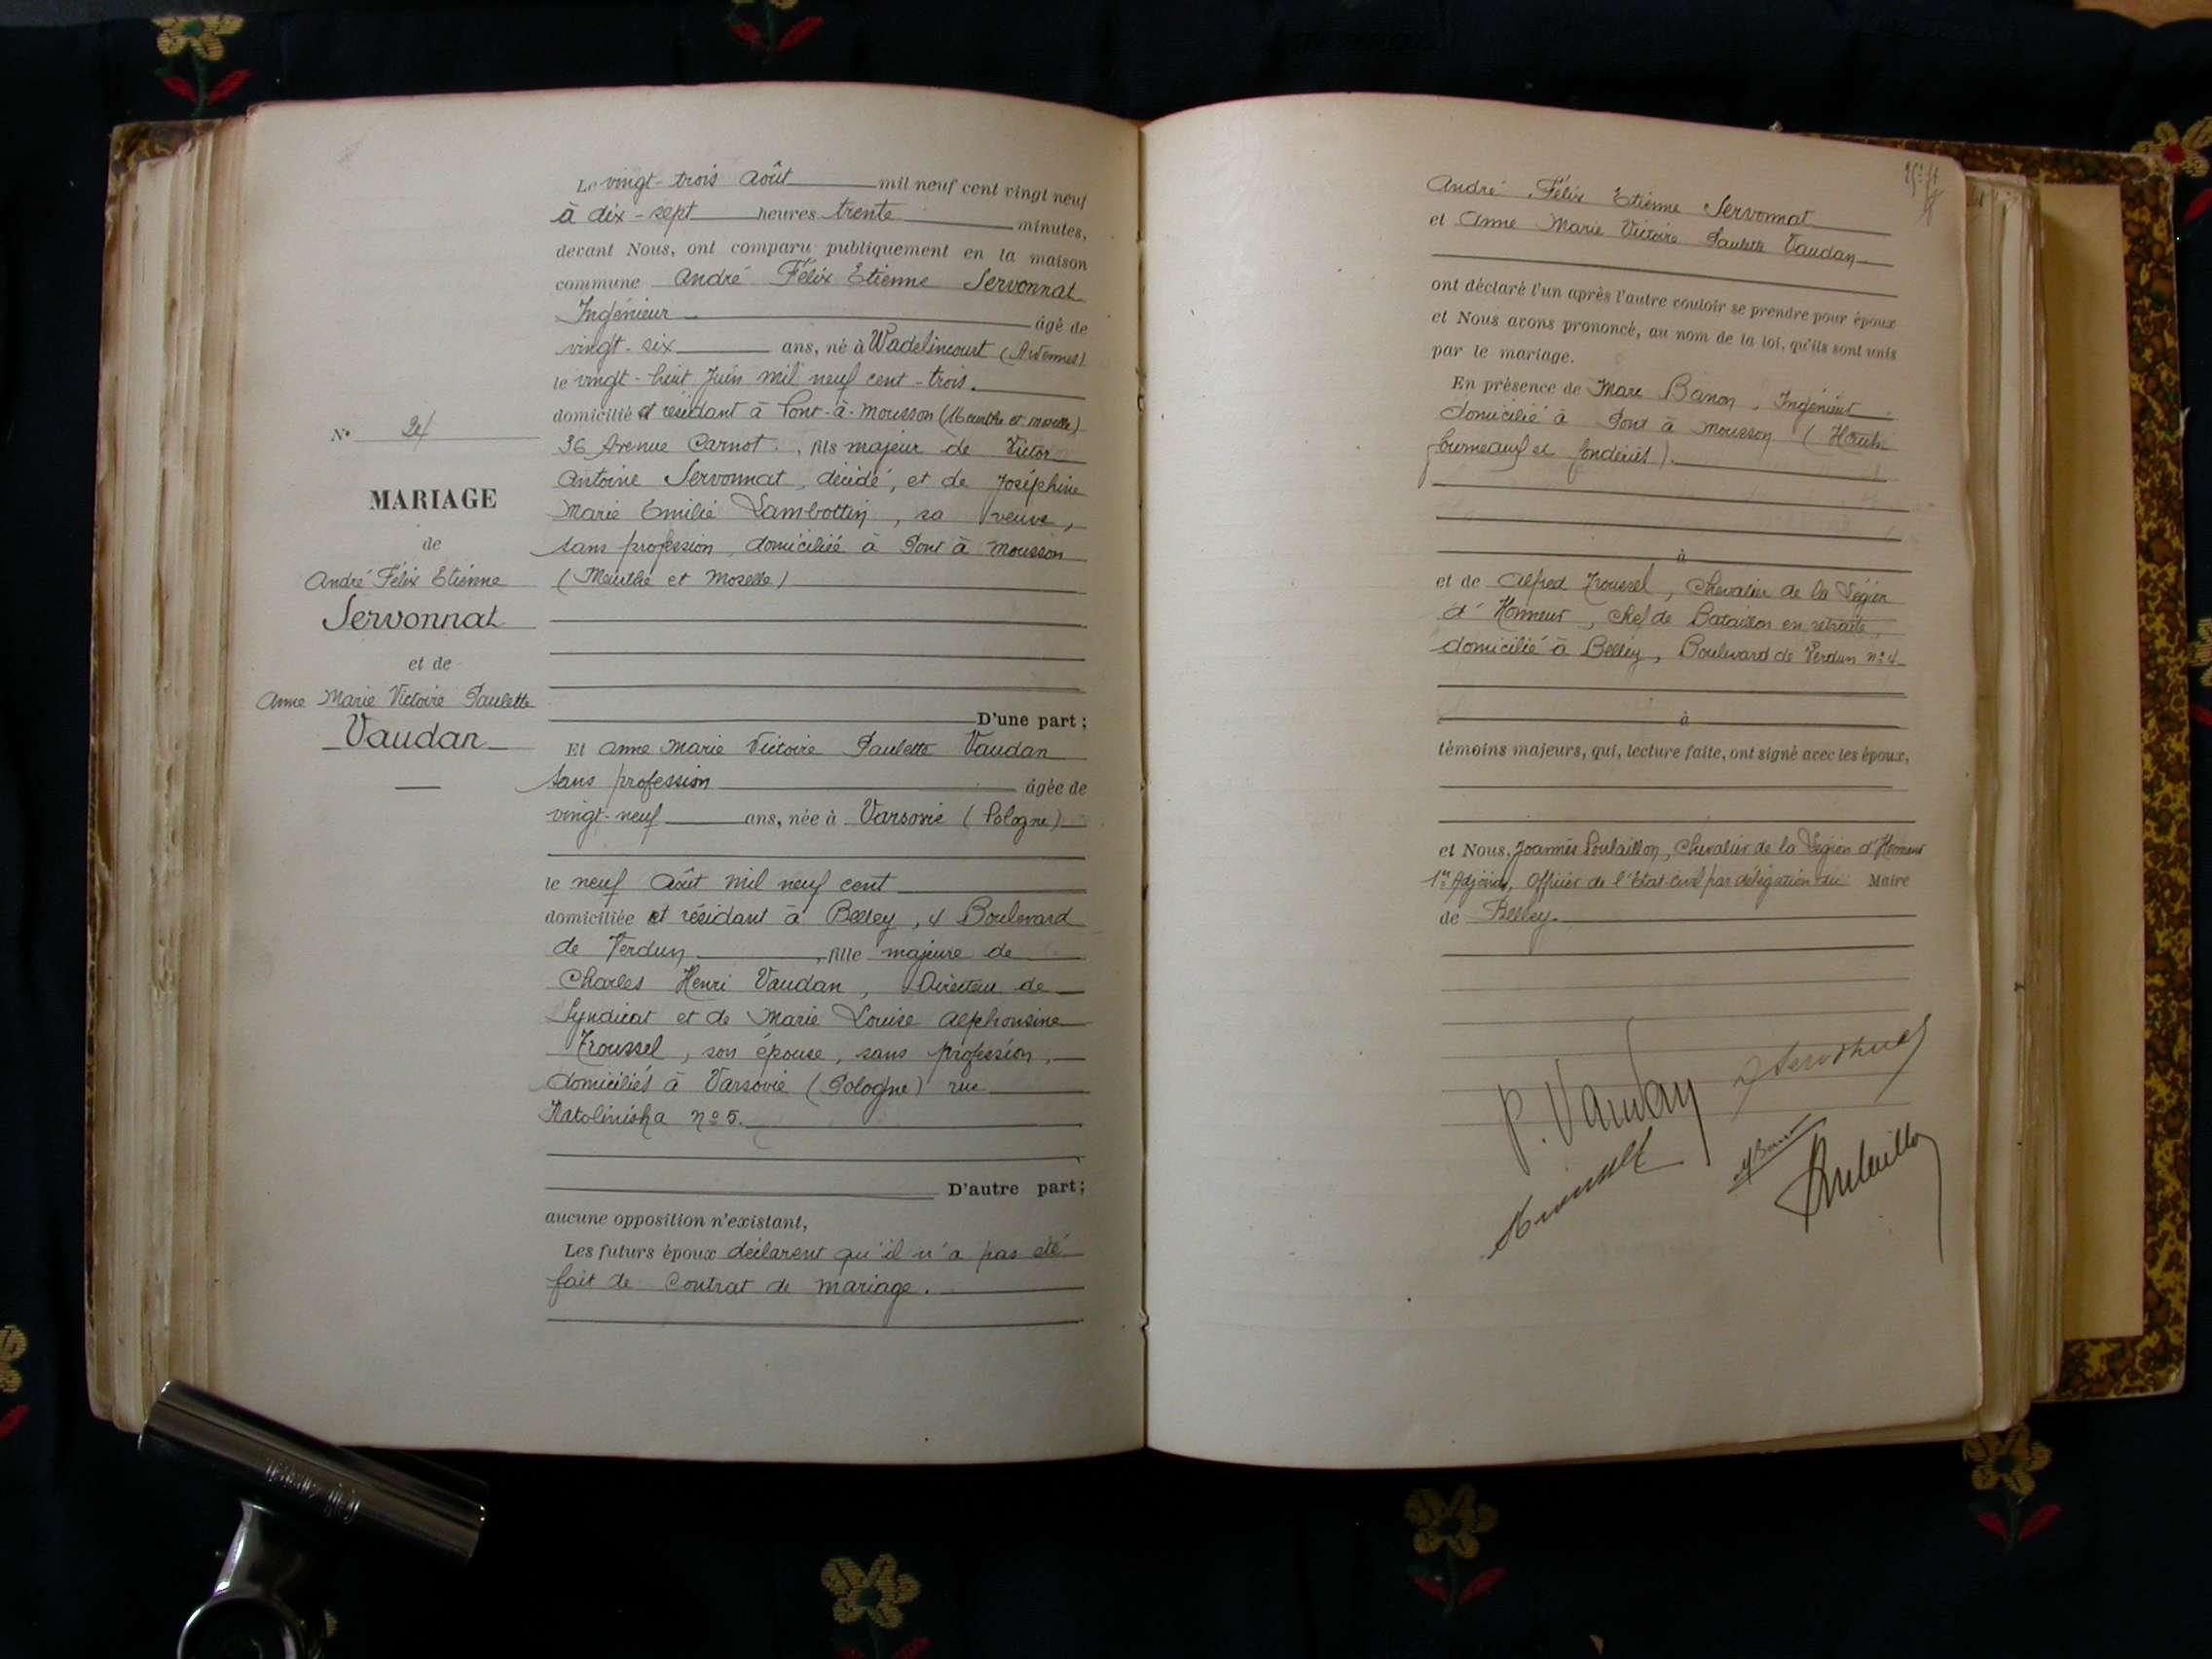 Le vingt-trois Août mil neuf cent vingt neuf
à dix-sept heures trente minutes,
devant Nous, ont comparu publiquement en la maison
commune André Félix Etienne Servonnat
Ingénieur âgé de
vingt-six ans, né à Wadelincourt (Ardennes)
le vingt-huit Juin mil neuf cent-trois.
domicilié et résidant à Pont-à-Mousson (Meurthe et Moselle)
36 Avenue Carnot, fils majeur de Victor
Antoine Servonnat, décédé, et de Joséphine
Marie Emilie Lambottin, sa veuve,
sans profession, domiciliée à Pont à Mousson
(Meurthe et Moselle)
D'une part ;
Et Anne Marie Victoire Paulette Vaudan
sans profession âgée de
vingt-neuf ans, née à Varsovie (Pologne)
le neuf Août mil neuf cent
domiciliée et résidant à Belley, 4 Boulevard
de Verdun, fille majeure de
Charles Henri Vaudan, Directeur de
Syndicat et de Marie Louise Alphonsine
Troussel, son épouse, sans profession,
domiciliés à Varsovie (Pologne) rue
Natolinska nº 5.
D'autre part ;
aucune opposition n'existant,
Les futurs époux déclarent qu'il n'a pas été
fait de Contrat de mariage.
Nº 24
MARIAGE
de
André Félix Etienne
Servonnat
et de
Anne Marie Victoire Paulette
Vaudan
André Félix Etienne Servonnat
et Anne Marie Victoire Paulette Vaudan
ont déclaré l'un après l'autre vouloir se prendre pour époux
et Nous avons prononcé, au nom de la loi, qu'ils sont unis
par le mariage.
En présence de Marc Banon, Ingénieur
domicilié à Pont à Mousson (Hauts
fourneaux et fonderies).
à
et de Alfred Troussel, Chevalier de la Légion
d'Honneur, Chef de Bataillon en retraite,
domicilié à Belley, Boulevard de Verdun nº 4
à
témoins majeurs, qui, lecture faite, ont signé avec les époux,
et Nous, Joannès Poulaillon, Chevalier de la Légion d'Honneur
1er Adjoint, Officier de l'Etat-Civil par délégation du Maire
de Belley.
P. Vaudan